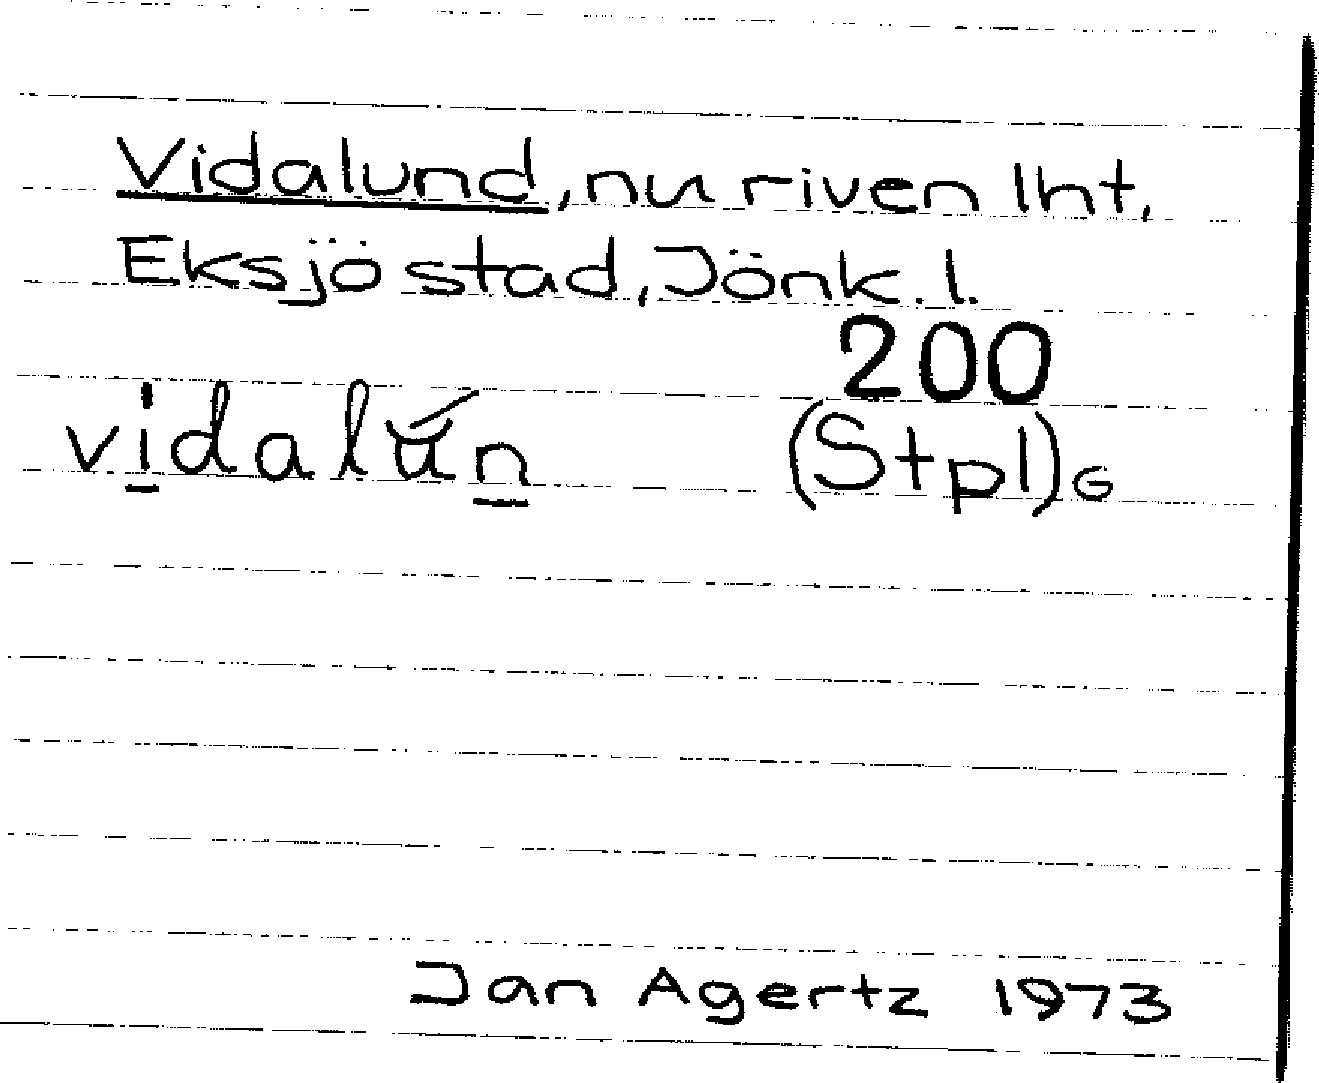 Vidalund, nu riven lht,
Eksjö stad, Jönk. l.
200
vi̱dalúṉ (Stpl)G
Jan Agertz 1973